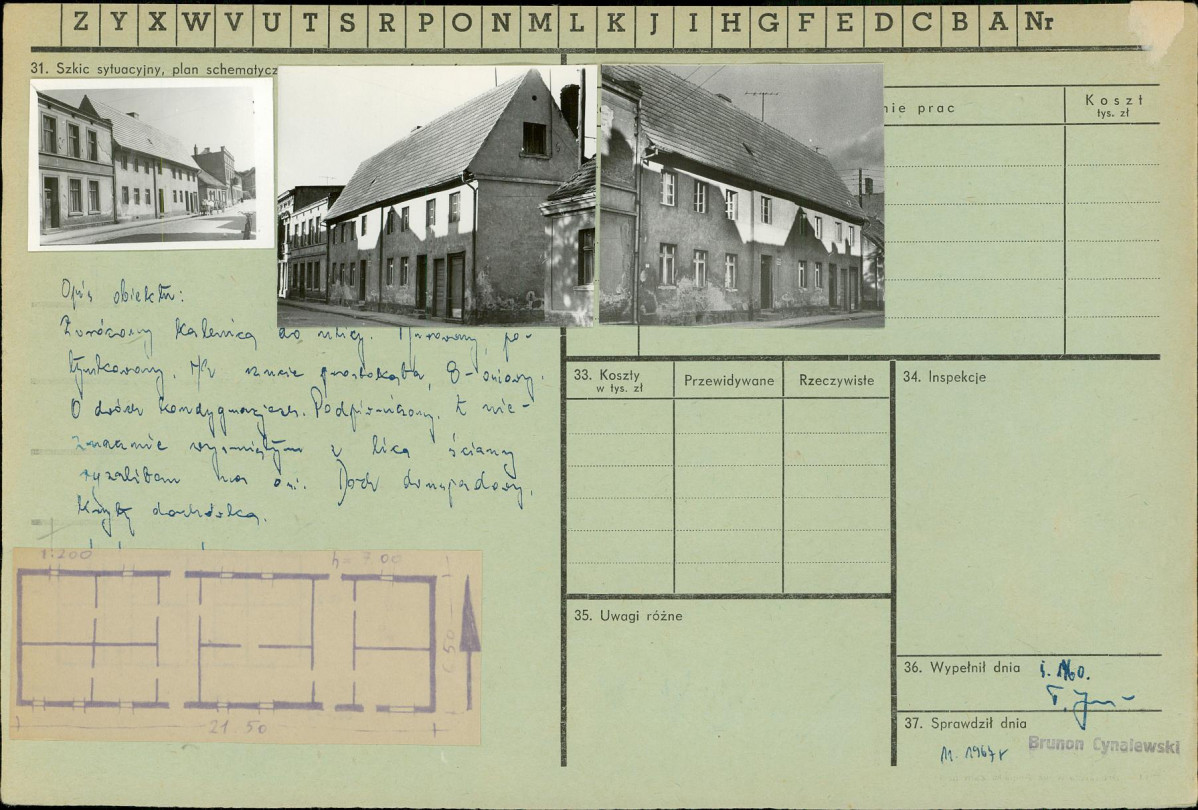 Z Y X W V U T S R P O N M L K J I H G F E D C B A Nr
31. Szkic sytuacyjny, plan schematycz
nie prac
Koszt
tys. zł
Opis obiektu:
Zwrócony kalenicą do ulicy. Murowany, po-
tynkowany. Na rzucie prostokąta, 8-osiowy.
O dwóch kondygnacjach. Podpiwniczony. Z nie-
znacznie wysuniętym z lica ściany
ryzalitem na osi. Dach dwuspadowy,
kryty dachówką.
1:200
h = 7.00
6 50
21 50
33. Koszty
w tys. zł
Przewidywane
Rzeczywiste
34. Inspekcje
35. Uwagi różne
36. Wypełnił dnia
37. Sprawdził dnia
11. 1967 r
Brunon Cynalewski